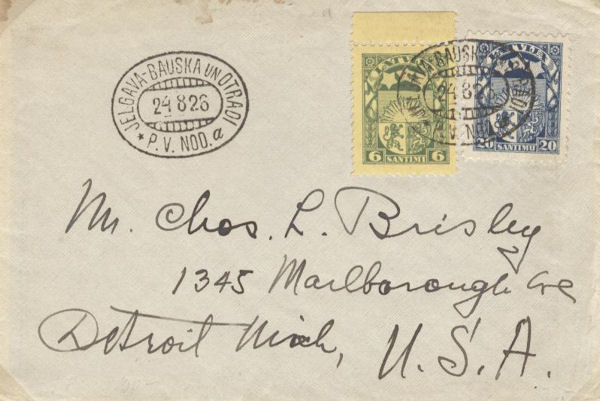 JELGAVA-BAUSKA UN OTRADI
24 8 26
★ P. V. NOD. a
LATVIJA
6 6
SANTIMI
LATVIJA
20 20
SANTIMU
JELGAVA-BAUSKA UN OTRADI
24 8 26
P. V. NOD.
Mr. Chas. L. Brisley
1345 Marlborough Ave
Detroit Mich, U.S.A.